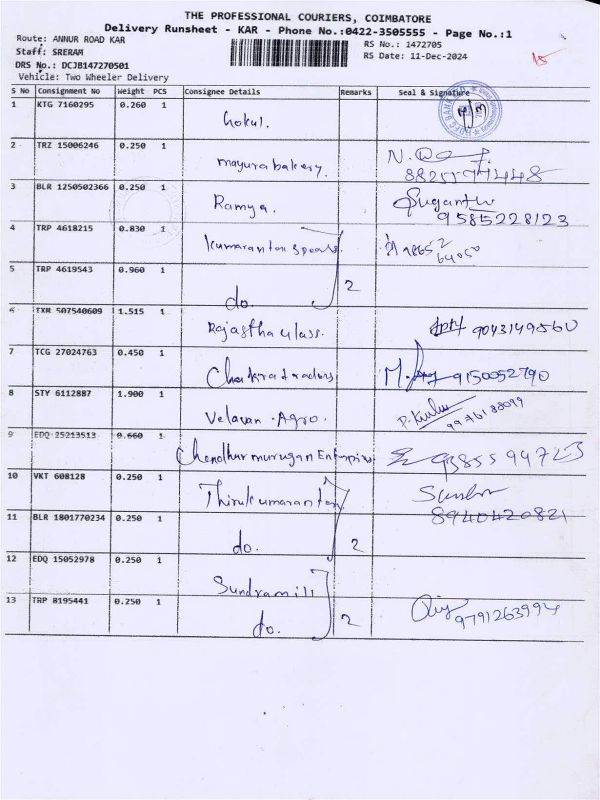 THE PROFESSIONAL COURIERS, COIMBATORE
Delivery Runsheet - KAR - Phone No.:0422-3505555 - Page No.:1
Route: ANNUR ROAD KAR
RS No.: 1472705
Staff: SRERAM
RS Date: 11-Dec-2024
15
DRS No.: DCJB147270501
Vehicle: Two Wheeler Delivery
S No Consignment No Weight PCS Consignee Details Remarks Seal & Signature
1 KTG 7160295 0.260 1 Gokul.
2 TRZ 15006246 0.250 1 mayura bakery.
3 BLR 1250502366 0.250 1 Ramya. 9585228123
4 TRP 4618215 0.830 1 98652 64050
5 TRP 4619543 0.960 1 do. 2
6 EXR 507540609 1.515 1 9043149560
7 TCG 27024763 0.450 1 Chakra traders 9150052790
8 STY 6112887 1.900 1 Velavan Agro. 9976188099
9 EDQ 25213513 0.660 1 Chendhur murugan Enterprises
10 VKT 608128 0.250 1 Thirukumaran 8940420821
11 BLR 1801770234 0.250 1 do. 2
12 EDQ 15052978 0.250 1 Sundramill
13 TRP 8195441 0.250 1 do. 2 9791263994